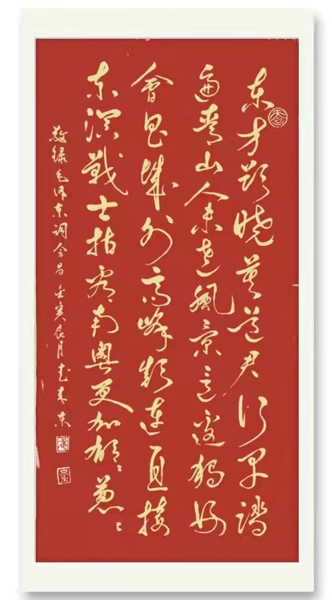 东方欲晓莫道君行早踏
遍青山人未老風景这边独好
會昌城外高峰颠连直接
东溟战士指看南粤更加郁々葱々
敬録毛泽东词会昌 壬寅辰月